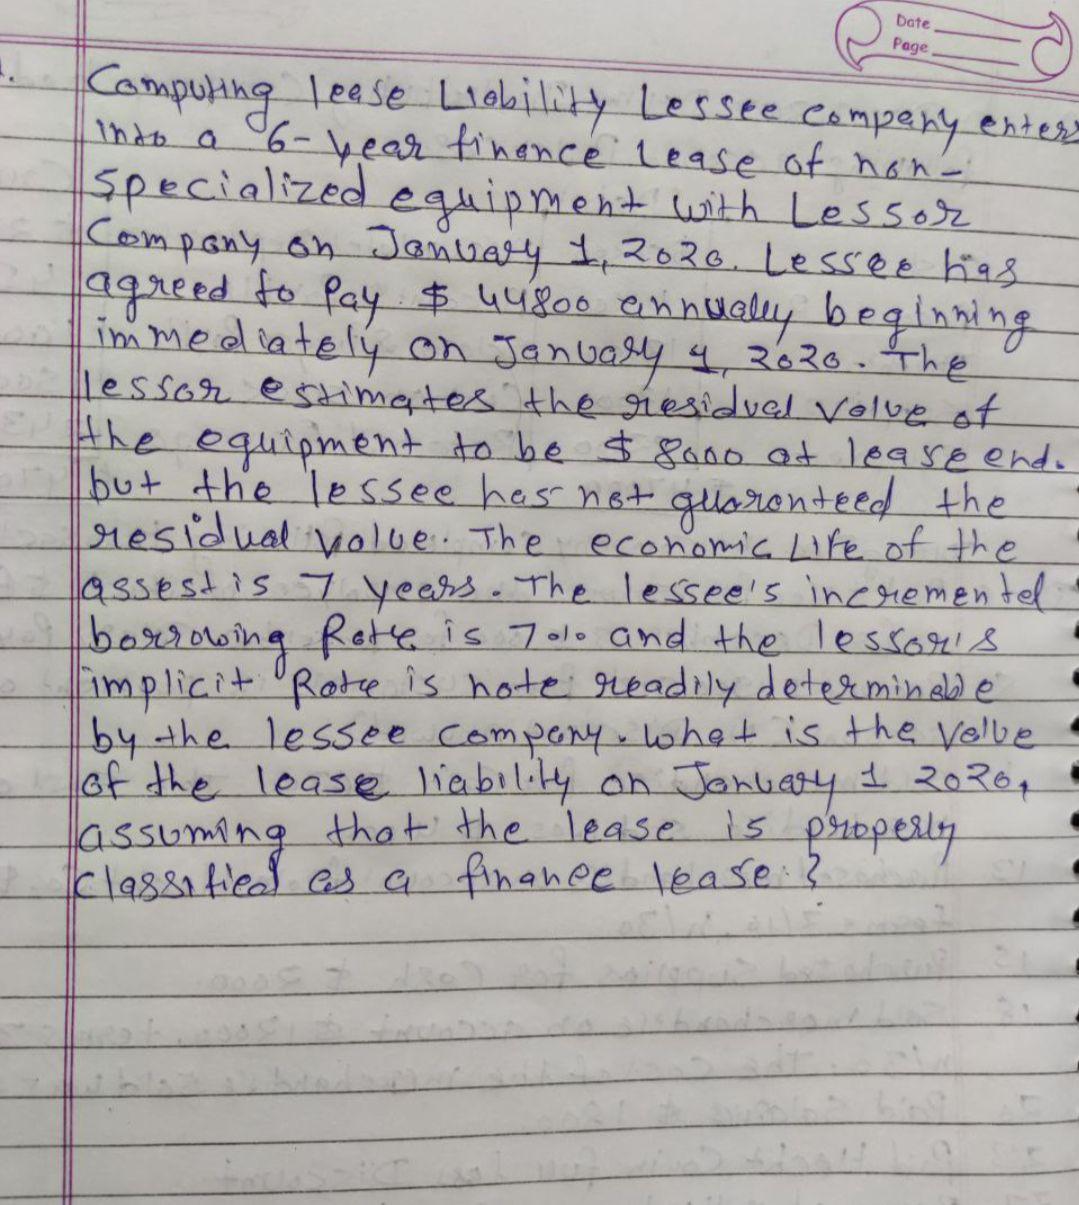 Date
Page
Computing lease Liability Lessee company enters
into a 6-year finance Lease of non-
specialized equipment with Lessor
Company on January 1, 2020. Lessee has
agreed to Pay $ 44800 annually beginning
immediately on January 1, 2020. The
lessor estimates the residual value of
the equipment to be $ 8000 at lease end.
but the lessee has not guaronteed the
residual value. The economic Life of the
assest is 7 years. The lessee's incremental
borrowing Rate is 7% and the lessor's
implicit Rate is note readily determinable
by the lessee company. What is the value
of the lease liability on January 1 2020,
assuming that the lease is properly
classified as a finance lease?